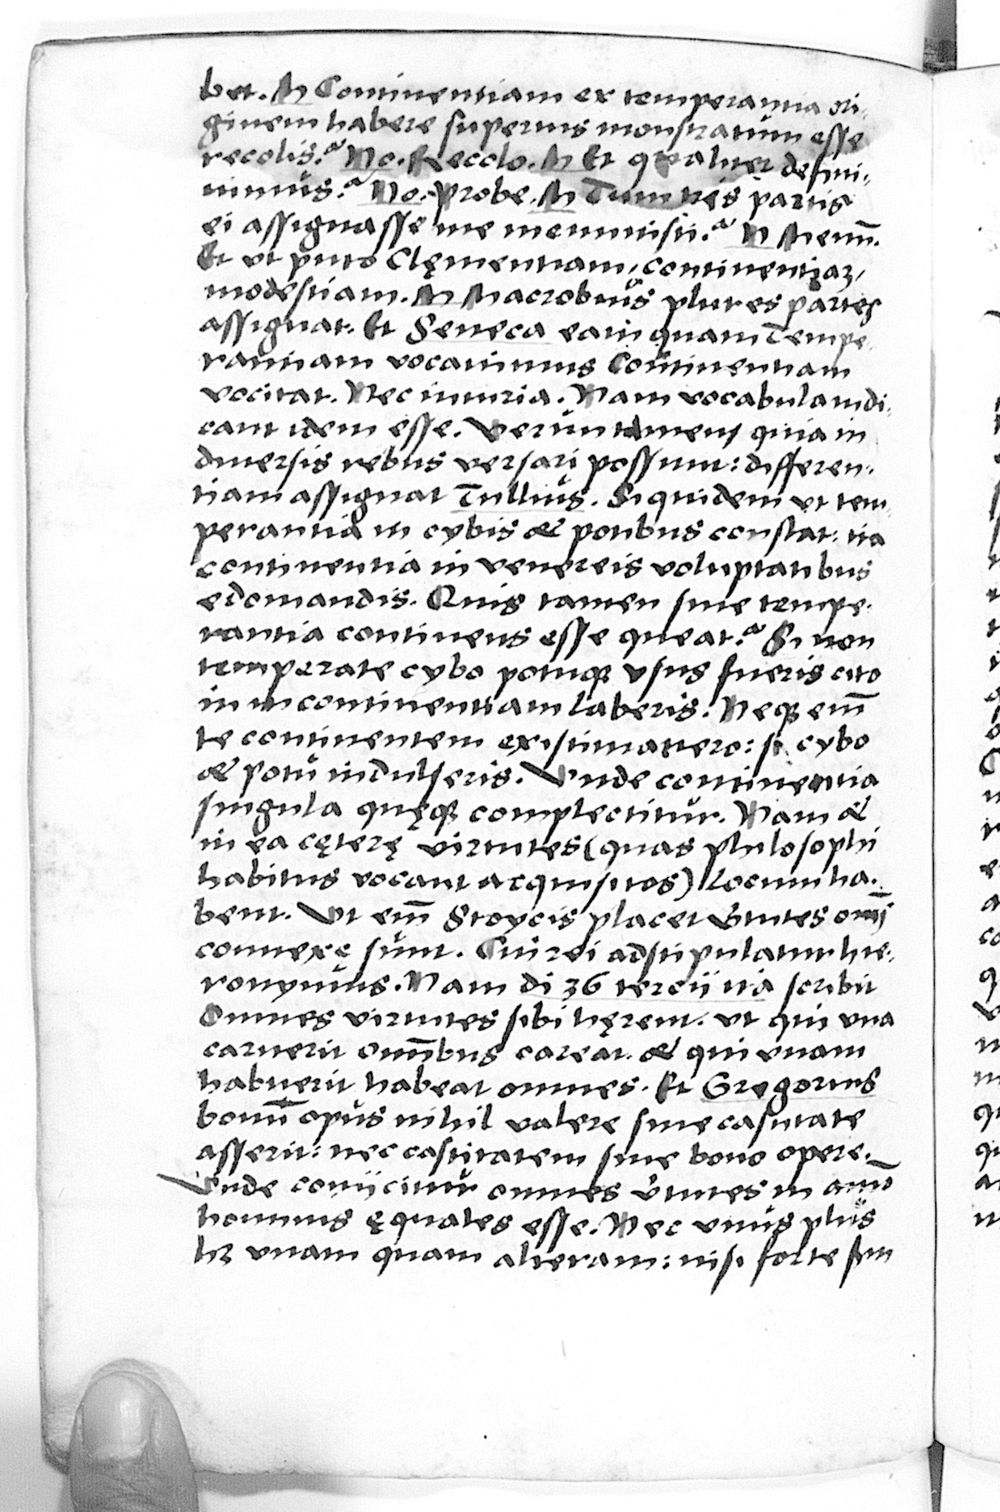 bet. M Continentiam ex temperantia ori-
ginem habere superius monstratum esse
recolis? No. Recolo. M Et qualiter defini-
uimus? No. Probe. M Tum tres partis
ei assignasse me meministi? N Memī.
Et vt puto Clęmentiam, continentiaʒ,
modestiam. M Macrobius plures partes
assignat. Et Seneca eam quam Tempe-
rantiam vocauimus Continentiam
vocitat. Nec iniuria. Nam vocabula indi-
cant idem esse. Veruntamen, quia in
diuersis rebus versari possunt: differen-
tiam assignat Tullius. Siquidem vt tem-
perantia in cybis & potibus constat: ita
continentia in venereis voluptatibus
edomandis. Quis tamen sine tempe-
rantia continens esse queat? Si non
temperate cybo potuqꝫ vsus fueris cito
in incontinentiam laberis. Neqꝫ em̄
te continentem existimauero: si cybo
& potu indulseris. Vnde continentia
singula quęqꝫ complectitur. Nam &
in ea cęterę virtutes (quas philosophi
habitus vocant acquisitos) Locum ha-
bent. Vt em̄ Stoycis placet v̄tutes om̄s
connexę sunt. Cui rei adstipulatur hie-
ronymus. Nam di 36 tercij ita scribit
Omnes virtutes sibi hęrent. vt qui vna
caruerit om̄bus careat. & qui vnam
habuerit habeat omnes. Et Gregorius
bonū opus nihil valere sine castitate
asserit: nec castitatem sine bono opere.
Vnde conijcitur omnes v̄tutes in aīo
hominis ęquales esse. Nec vnus plus
hʒ vnam quam alteram: nisi forte sim